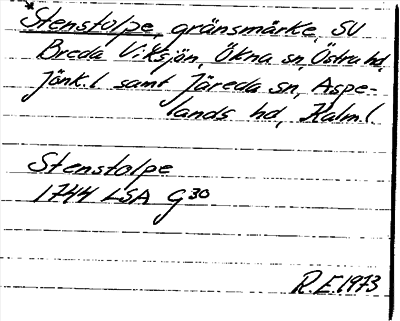 *Stenstolpe, gränsmärke, SV
Breda Viksjön, Ökna sn, Östra hd,
Jönk.l samt Järeda sn, Aspe-
lands hd, Kalm.l
Stenstolpe
1744 LSA G30
R.E. 1973